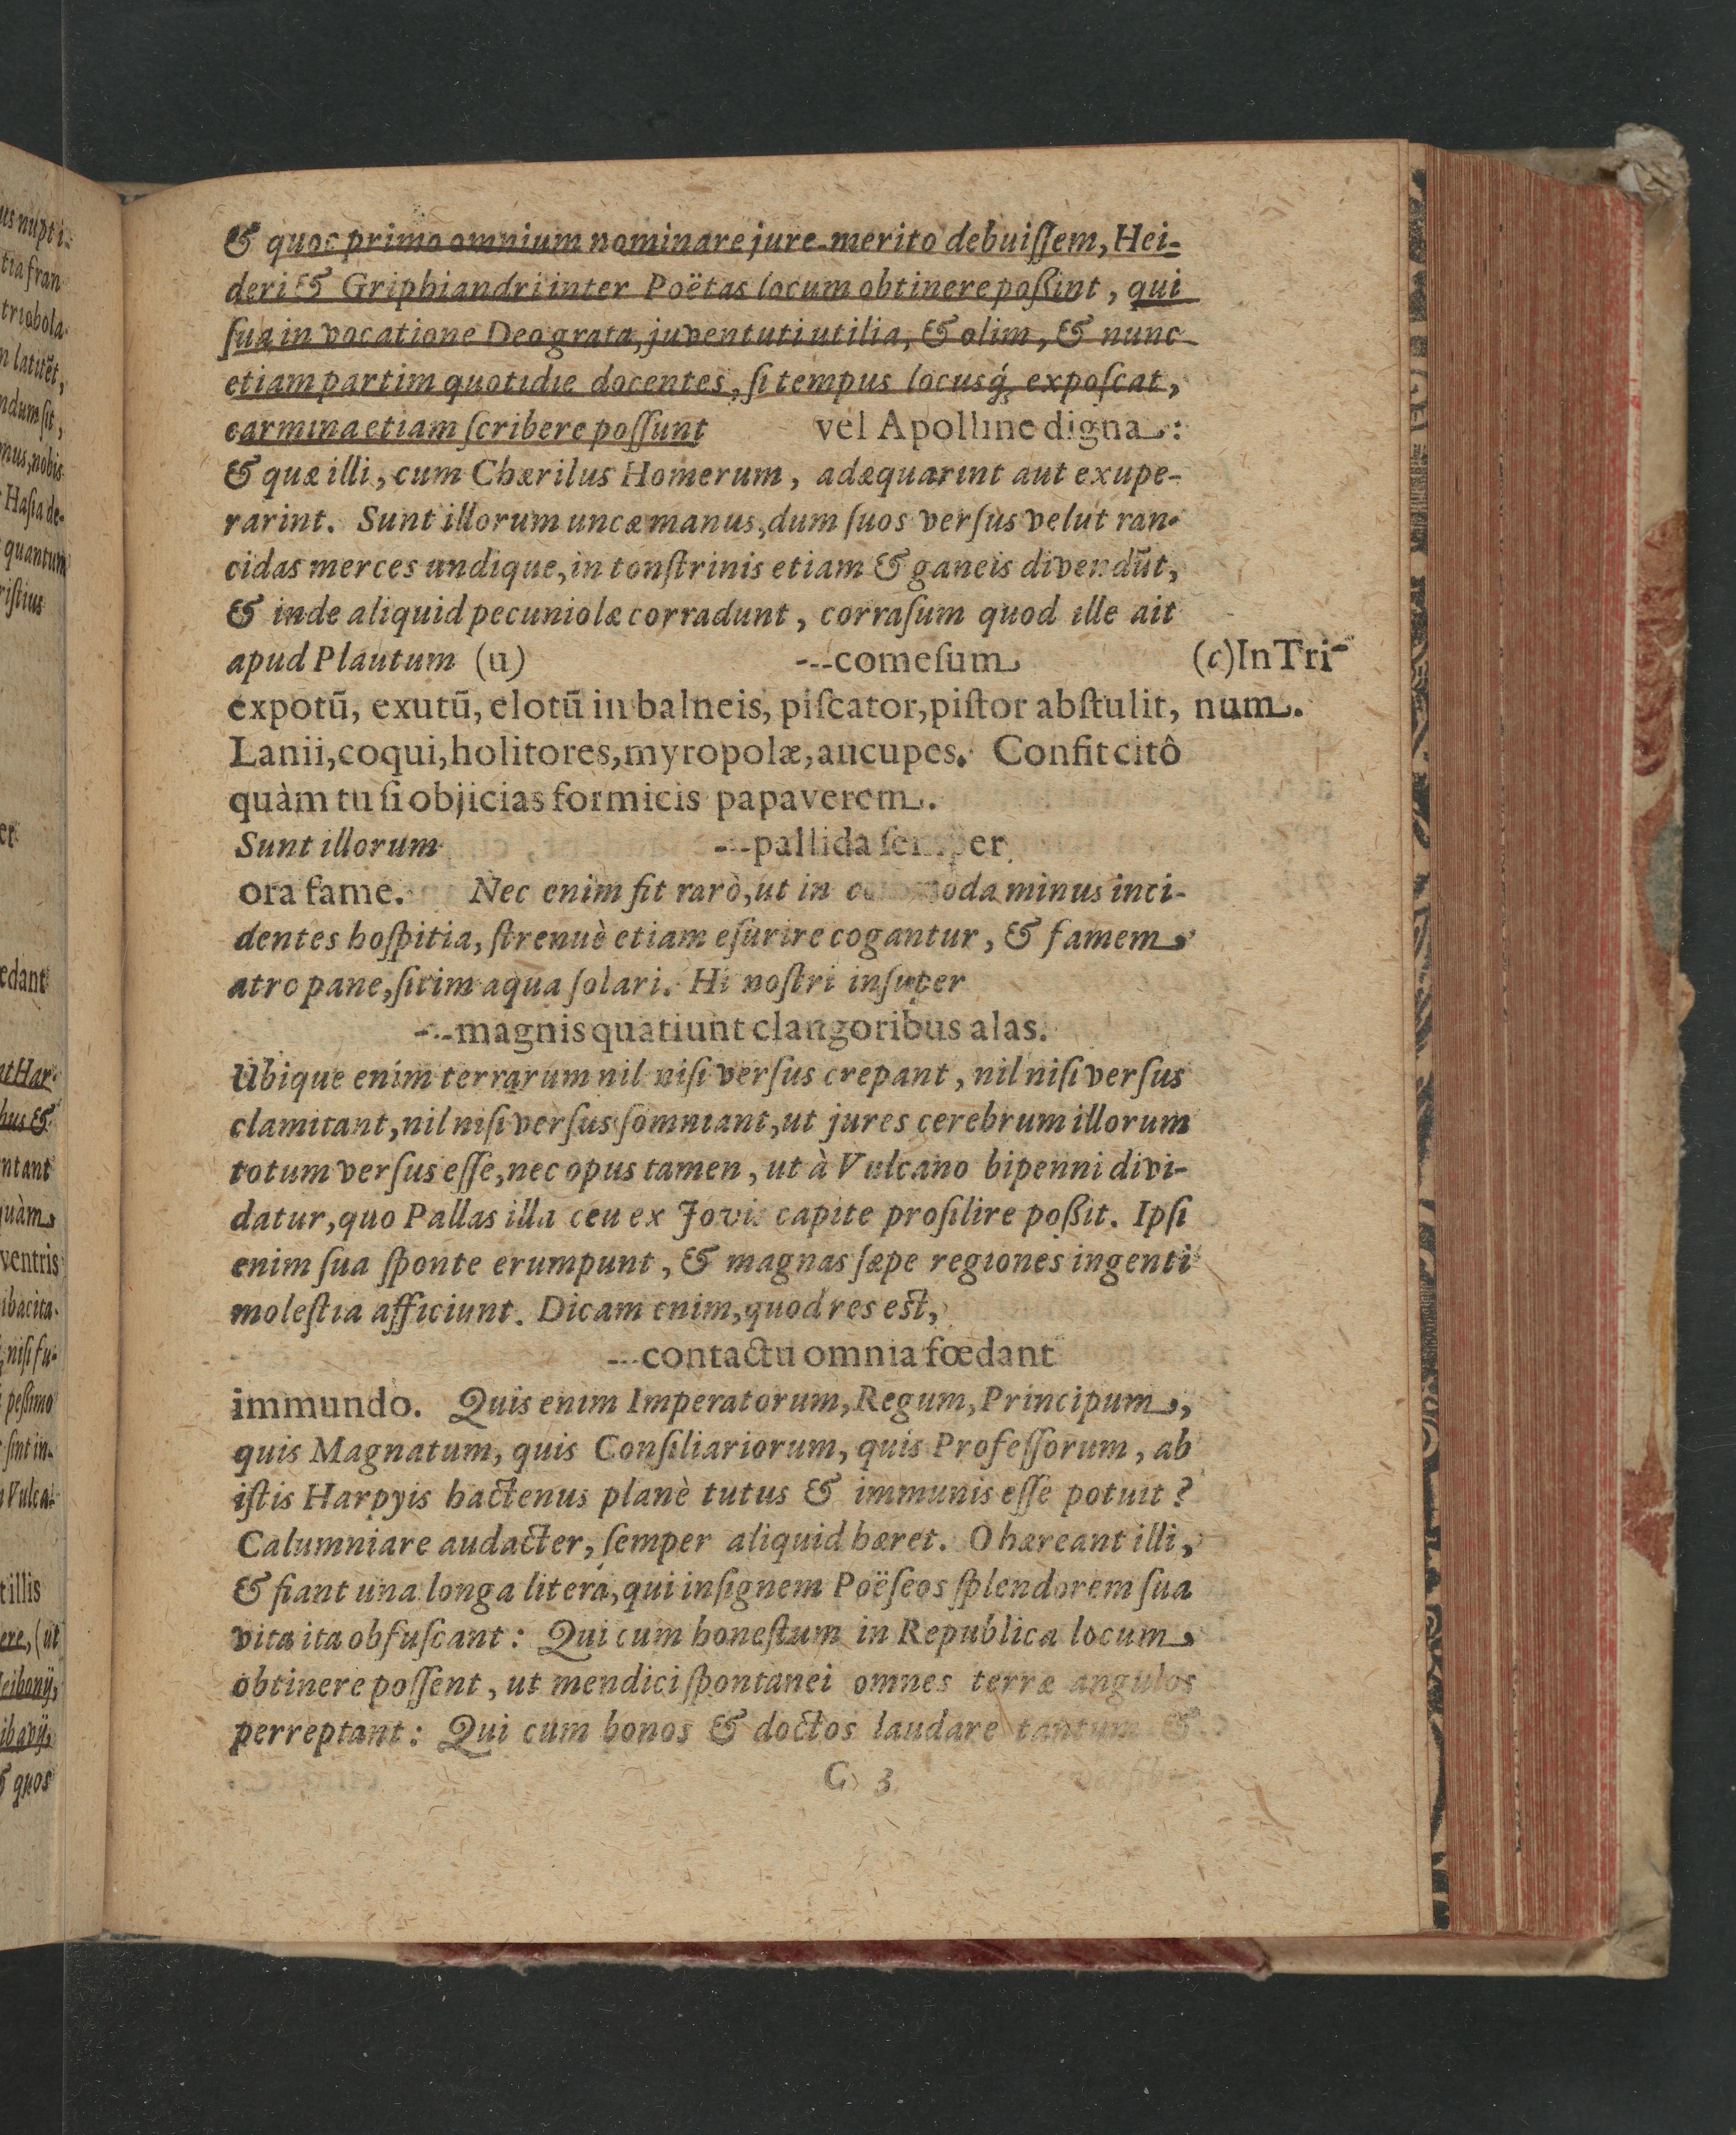 & quos primo omnium nominare jure merito debuiſſem, Hei-
deri & Griphiandri inter Poëtas locum obtinere poßint, qui
ſua in vocatione Deo grata, juventuti utilia, & olim, & nunc
etiam partim quotidie docentes, ſi tempus locusq́; expoſcat,
carmina etiam ſcribere poſſunt vel Apolline digna:
& quæ illi, cum Chærilus Homerum, adæquarint aut exupe-
rarint. Sunt illorum uncæ manus, dum ſuos verſus velut ran-
cidas merces undique, in tonſtrinis etiam & ganeis divendūt,
& inde aliquid pecuniolæ corradunt, corraſum quod ille ait
apud Plautum (u) ---comeſum
(c) In Tri-
expotū, exutū, elotū in balneis, piſcator, piſtor abſtulit,
num.
Lanii, coqui, holitores, myropolæ, aucupes. Confit citô
quàm tu ſi objicias formicis papaverem.
Sunt illorum ---pallida ſemper
ora fame. Nec enim fit rarò, ut in commoda minus inci-
dentes hoſpitia, ſtrenuè etiam eſurire cogantur, & famem
atro pane, ſitim aqua ſolari. Hi noſtri inſuper
---magnis quatiunt clangoribus alas.
Ubique enim terrarum nil niſi verſus crepant, nil niſi verſus
clamitant, nil niſi verſus ſomniant, ut jures cerebrum illorum
totum verſus eſſe, nec opus tamen, ut à Vulcano bipenni divi-
datur, quo Pallas illa ceu ex Jovis capite proſilire poßit. Ipſi
enim ſua ſponte erumpunt, & magnas ſæpe regiones ingenti
moleſtia afficiunt. Dicam enim, quod res eſt,
---contactu omnia fœdant
immundo. Quis enim Imperatorum, Regum, Principum,
quis Magnatum, quis Conſiliariorum, quis Profeſſorum, ab
iſtis Harpyis hactenus planè tutus & immunis eſſe potuit?
Calumniare audacter, ſemper aliquid hæret. O hæreant illi,
& fiant una longa litera, qui inſignem Poëſeos ſplendorem ſua
vita ita obfuſcant: Qui cum honeſtum in Republica locum
obtinere poſſent, ut mendici ſpontanei omnes terræ angulos
perreptant: Qui cum bonos & doctos laudare tantum &
C 3